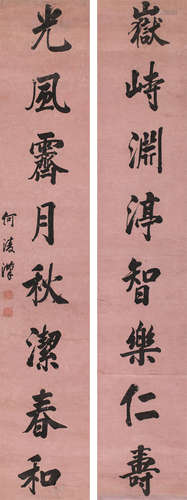 嶽峙淵渟智樂仁壽
光風霽月秋潔春和
何淩漢